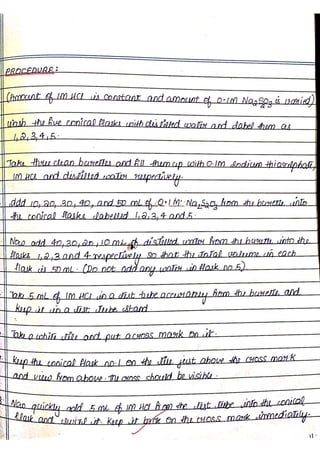 PROCEDURE:
(Amount of 1M HCl is constant and amount of 0.1M Na2S2O3 is varied)
Wash the five conical flasks with distilled water and label them as
1, 2, 3, 4, 5.
Take three clean burettes and fill them up with 0.1M sodium thiosulphate,
1M HCl and distilled water respectively.
Add 10, 20, 30, 40, and 50 mL of 0.1M Na2S2O3 from the burette into
the conical flasks labelled 1, 2, 3, 4 and 5.
Now add 40, 30, 20, 10 mL of distilled water from the burette into the
flasks 1, 2, 3 and 4 respectively so that the total volume in each
flask is 50 mL. (Do not add any water in flask no 5).
Take 5 mL of 1M HCl in a test tube accurately from the burette and
keep it in a test tube stand
Take a white tile and put a cross mark on it.
Keep the conical flask no.1 on the tile just above the cross mark
and view from above. The cross should be visible.
Now quickly add 5 mL of 1M HCl from the test tube into the conical
flask and it. Keep it back on the cross mark immediately.